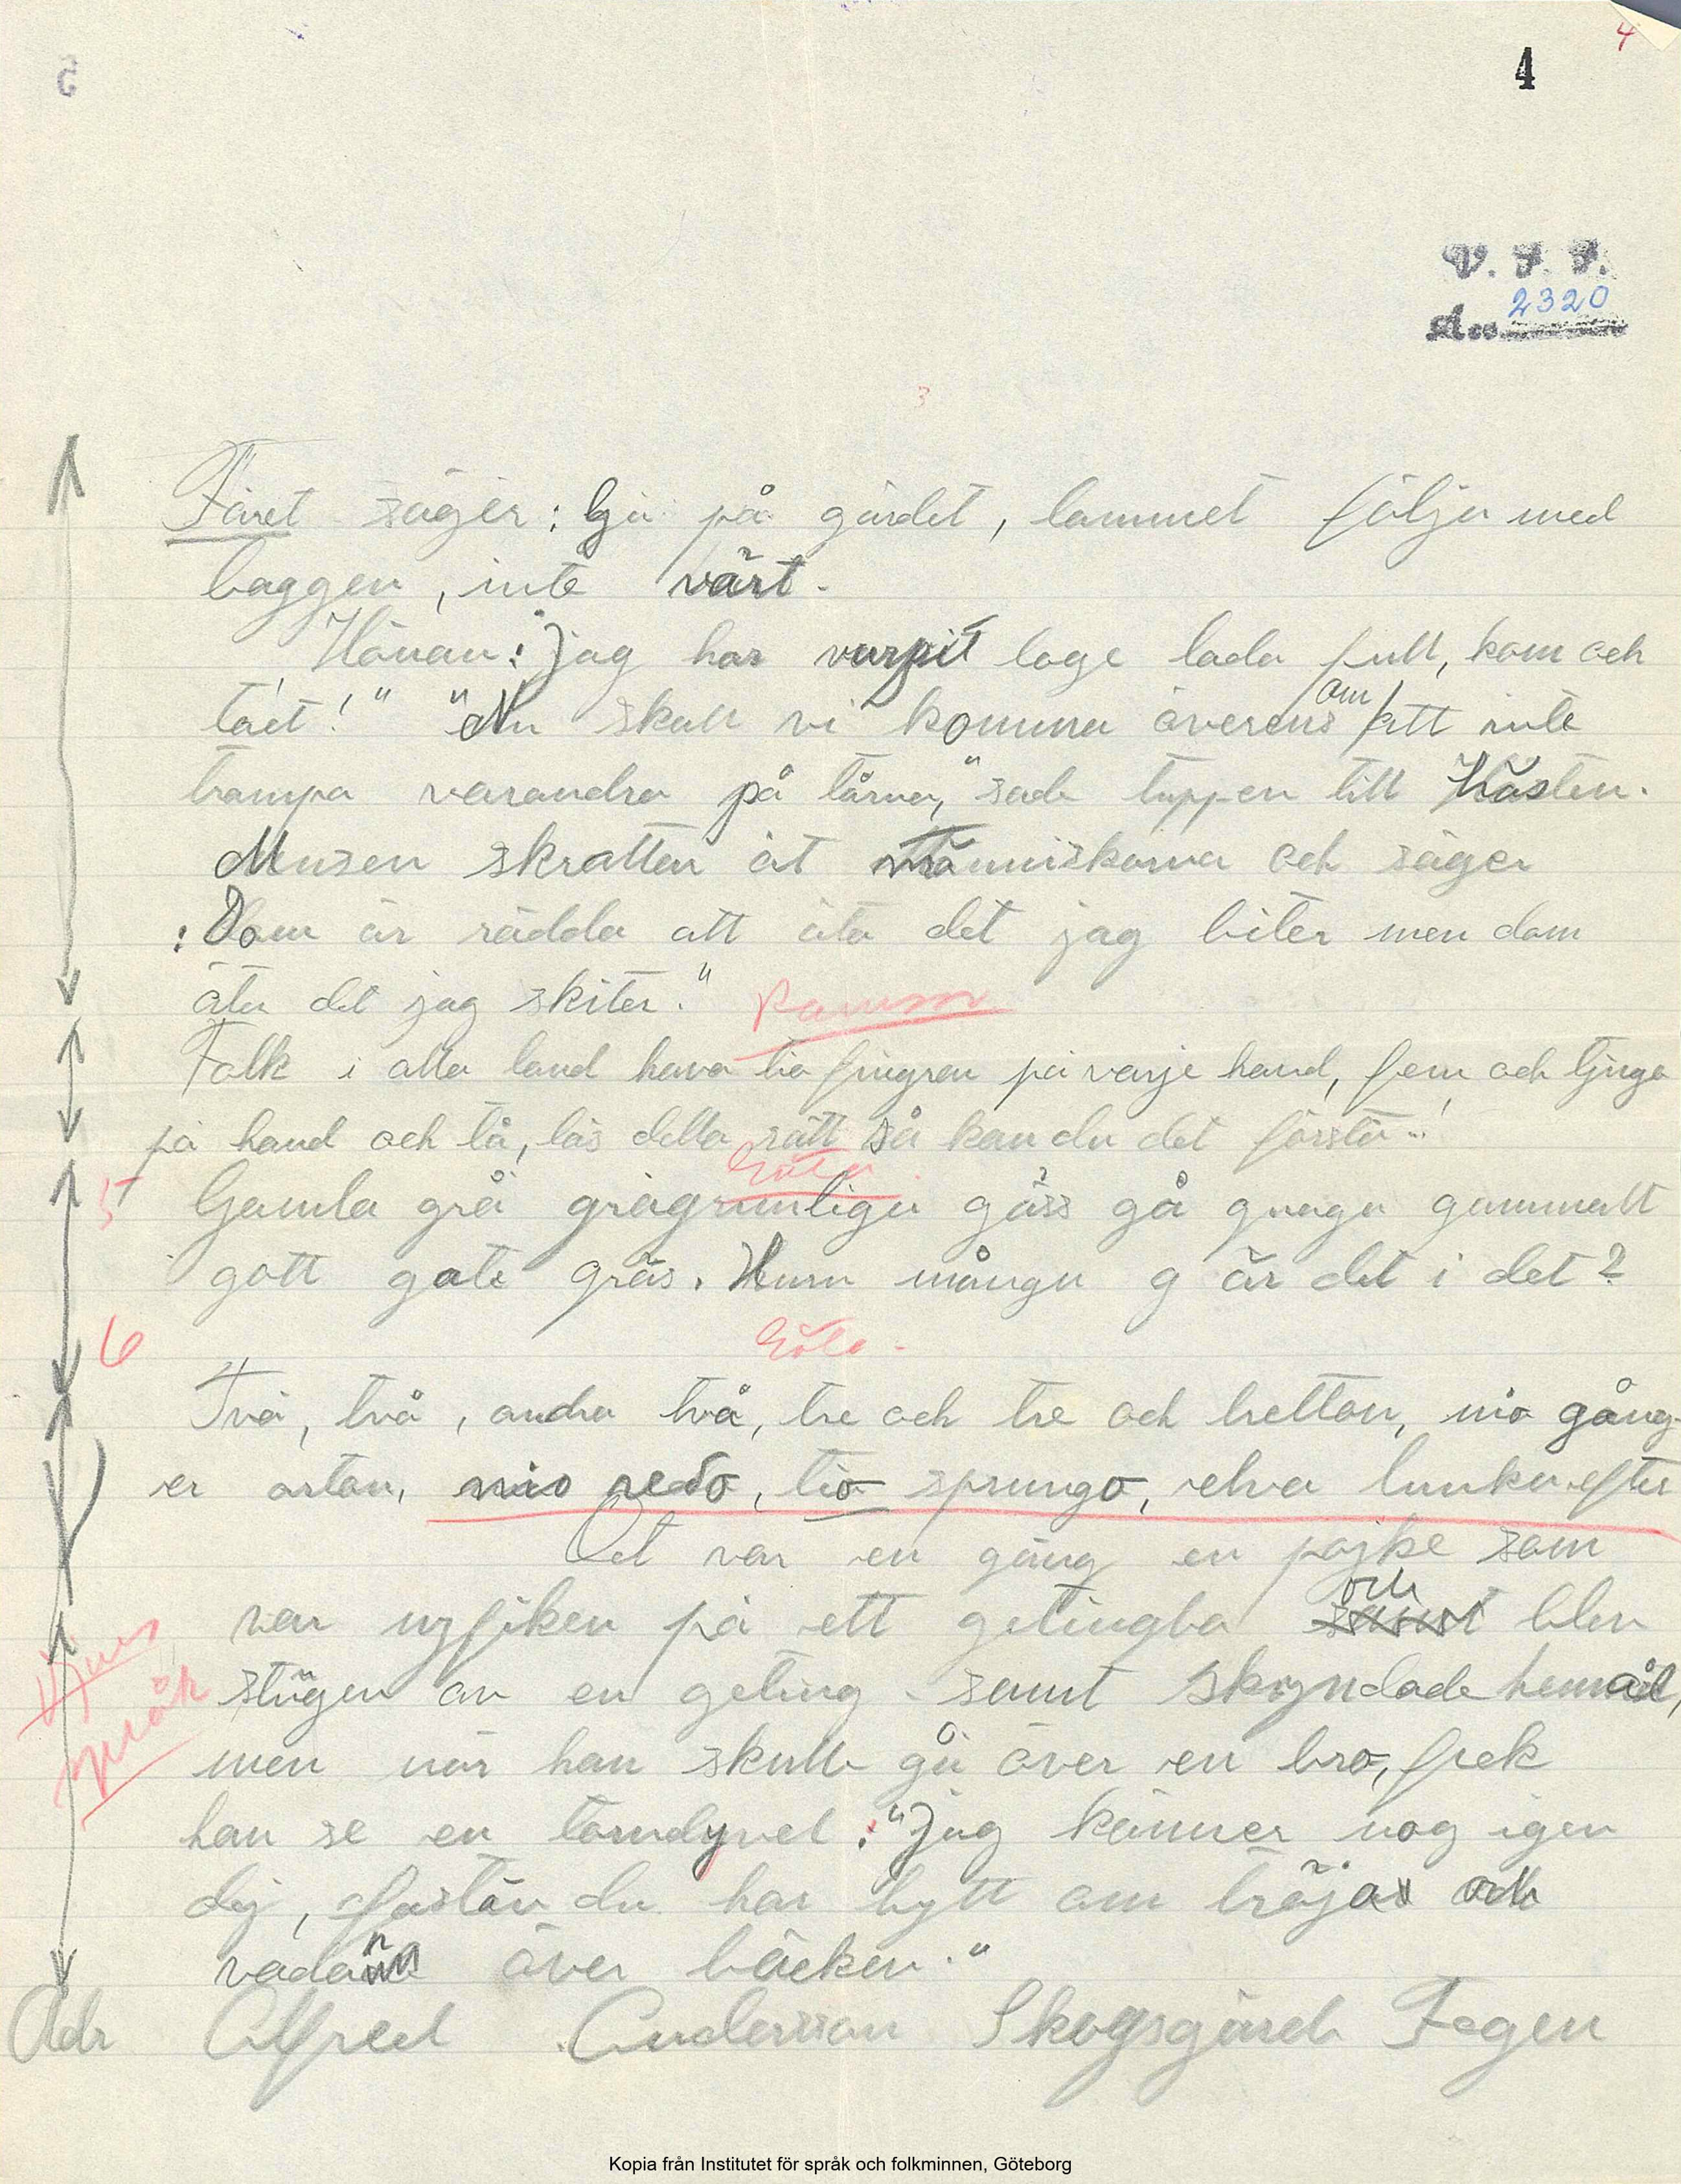 4
4
V. F. F.
2320
3
Fåret säger: gå på gärdet, lammet följa med
baggen, inte värt.
Hönan: "jag har vurpit loge lada full, kom och
taet!" "Nu skall vi komma överens om att inte
trampa varandra på tårna," sade tuppen till Hästen.
Musen skrattar åt människorna och säger
: Dom är rädda att äta det jag biter men dom
äta det jag skiter." Ramsor
Folk i alla land hava tio fingrar på varje hand, fem och tjugo
på hand och tå, läs detta rätt så kan du det förstå!
Gåta
5 Gamla grå grågrumliga gäss gå gnaga gammalt
gott gate gräs. Huru många g är det i det?
6 Gåta.
Två, två, andra två, tre och tre och tretton, nio gång-
er arton, nio redo, tio sprungo, elva lunka efter
Det var en gång en pojke som
var nyfiken på ett getingbo samt och blev
stygen av en geting samt skyndade hemåt,
men när han skulle gå över en bro, fick
han se en torndyvel: "Jag känner nog igen
dej, fastän du har bytt om tröja och
vadan över bäcken."
Djurs
språk
Adr Alfred Andersson Skogsgård Fegen
Kopia från Institutet för språk och folkminnen, Göteborg